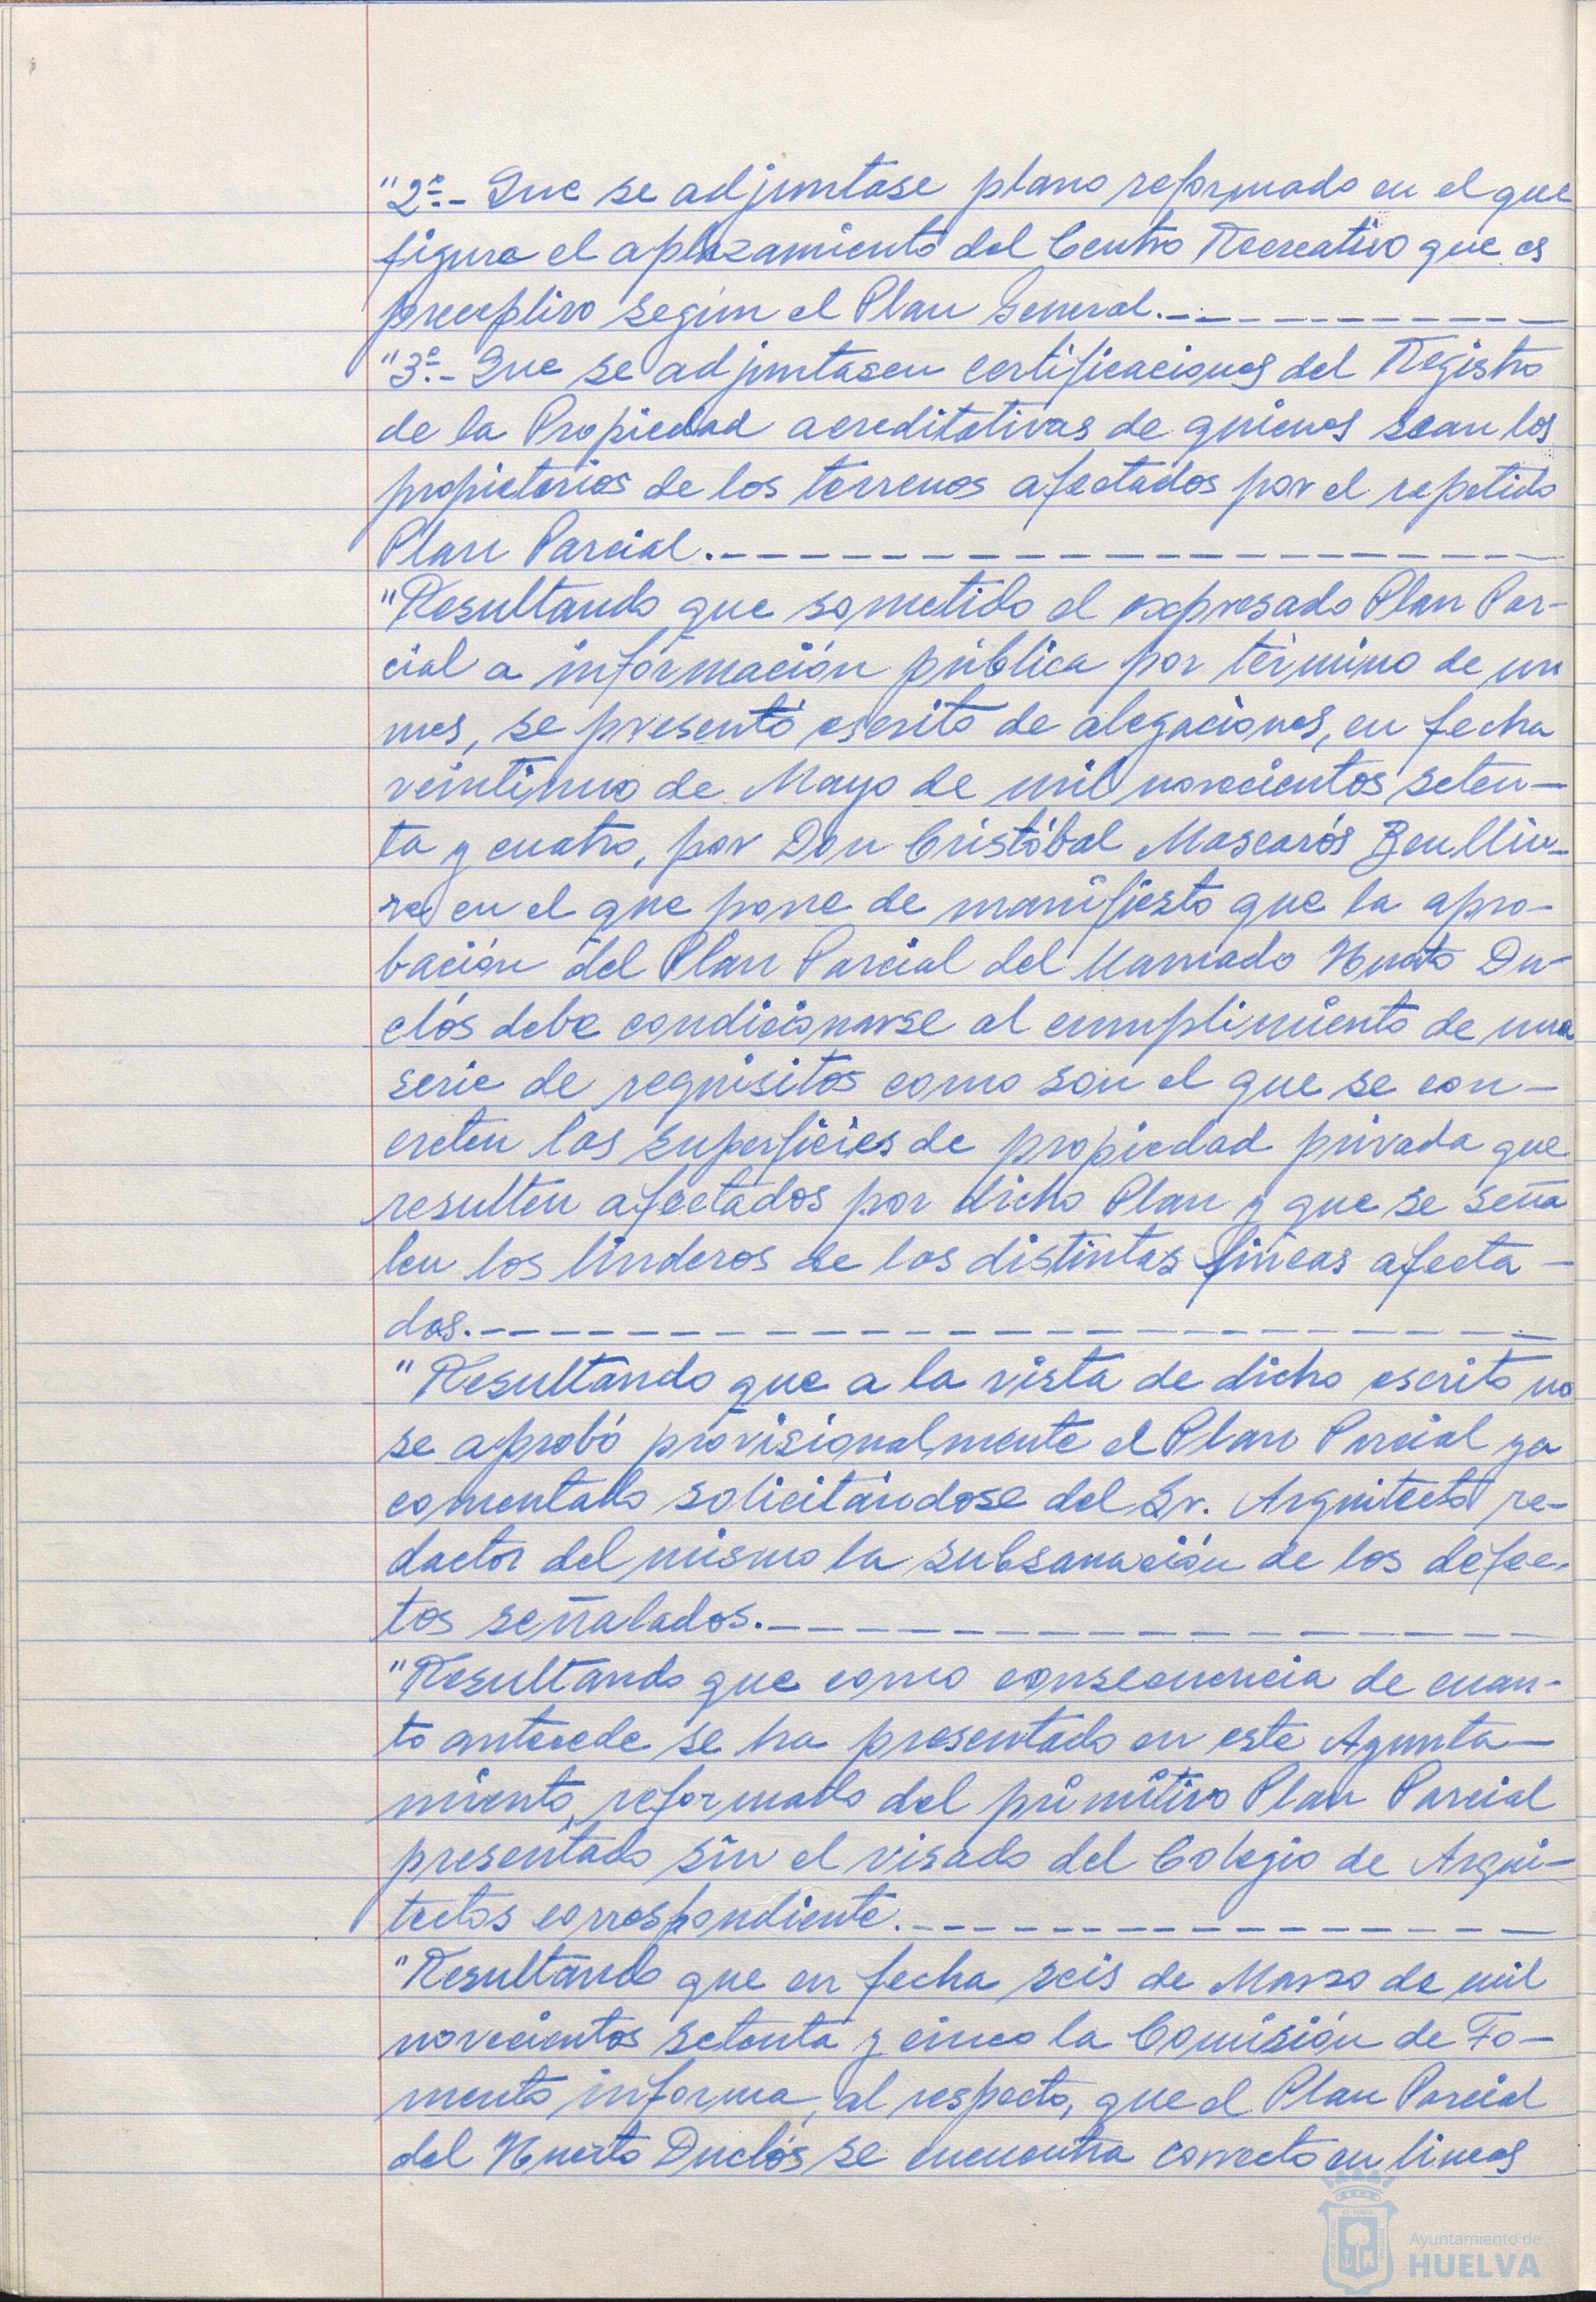 "2º.- Que se adjuntase plano reformado en el que
figura el aplazamiento del Centro Recreativo que es
preceptivo según el Plan General.
"3º.- Que se adjuntasen certificaciones del Registro
de la Propiedad acreditativas de quienes sean los
propietarios de los terrenos afectados por el repetido
Plan Parcial.
"Resultando que sometido el expresado Plan Par-
cial a información pública por término de un
mes, se presentó escrito de alegaciones, en fecha
veintiuno de Mayo de mil novecientos seten-
ta y cuatro, por Don Cristóbal Mascarós Benlliu-
re en el que pone de manifiesto que la apro-
bación del Plan Parcial del llamado Huerto Du-
clós debe condicionarse al cumplimiento de una
serie de requisitos como son el que se con-
creten las superficies de propiedad privada que
resulten afectados por dicho Plan y que se seña
len los linderos de las distintas fincas afecta-
das.
"Resultando que a la vista de dicho escrito no
se aprobó provisionalmente el Plan Parcial ya
comentado solicitándose del Sr. Arquitecto re-
dactor del mismo la subsanación de los defec-
tos señalados.
"Resultando que como consecuencia de cuan-
to antecede se ha presentado en este Ayunta-
miento, reformado del primitivo Plan Parcial
presentado sin el visado del Colegio de Arqui-
tectos correspondiente.
"Resultando que en fecha seis de Marzo de mil
novecientos setenta y cinco la Comisión de Fo-
mento informa, al respecto, que el Plan Parcial
del Huerto Duclós se encuentra correcto en lineas
Ayuntamiento de
HUELVA